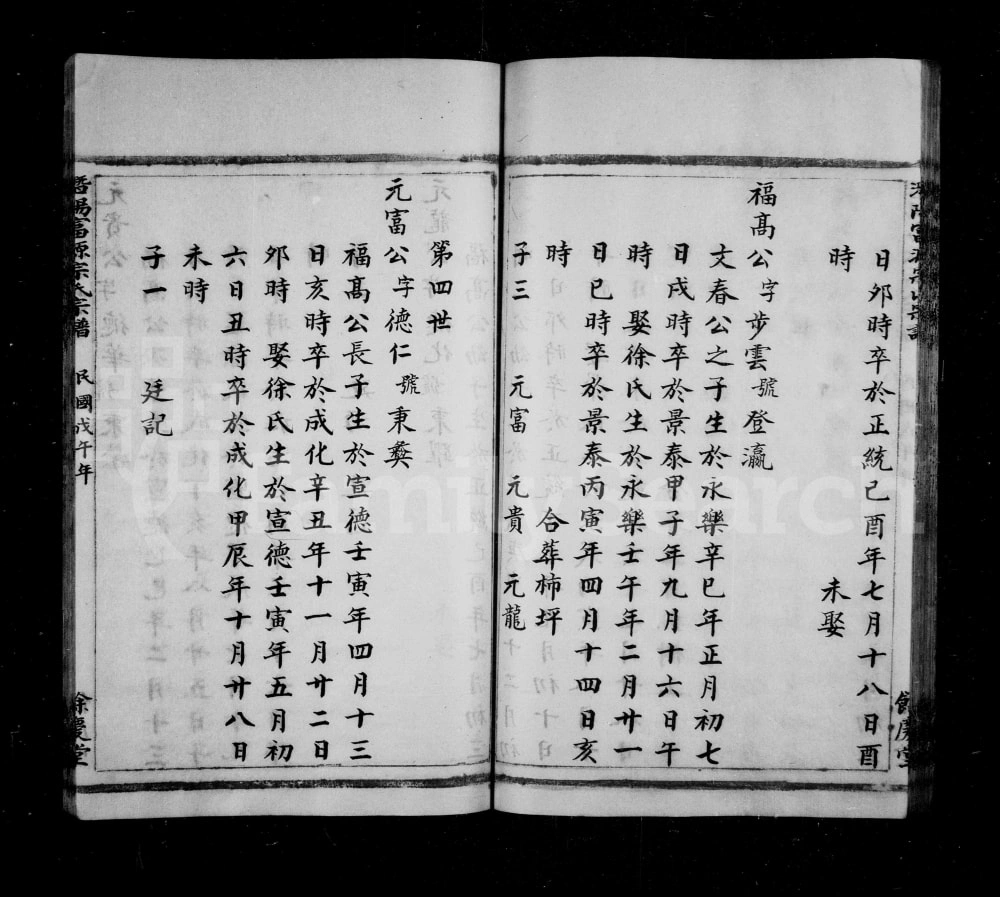 日夘時卒於正統己酉年七月十八日酉
時　未娶
福髙公字步雲號登瀛
文春公之子生於永樂辛巳年正月初七
日戌時卒於景泰甲子年九月十六日午
時娶徐氏生於永樂壬午年二月廿一
日巳時卒於景泰丙寅年四月十四日亥
時　合葬柿坪
子三　元富　元貴　元龍
第四世
元富公字德仁號秉彝
福髙公長子生於宣德壬寅年四月十三
日亥時卒於成化辛丑年十一月廿二日
夘時娶徐氏生於宣德壬寅年五月初
六日丑時卒於成化甲辰年十月廿八日
未時
子一　廷記
富源宗氏宗譜　民國戊午年　餘慶堂